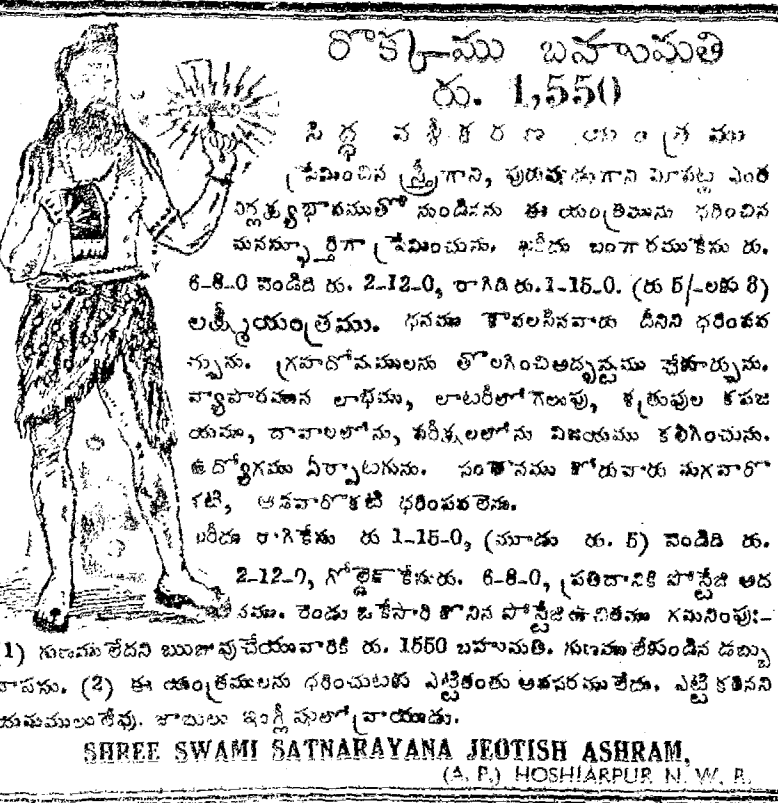 రొక్కము బహుమతి
రు. 1,550
సిద్ధ వశీకరణ యంత్రము
ప్రేమించిన స్త్రీగాని, పురుషుడుగాని మీపట్ల ఎంత
నిర్లక్ష్యభావముతో నుండినను ఈ యంత్రమును ధరించిన
మనస్ఫూర్తిగా ప్రేమించును. ఖరీదు బంగారముకేను రు.
6-8-0 వెండిది రు. 2-12-0, రాగిది రు. 1-15-0. (రు 5/-లకు 3)
లక్ష్మీయంత్రము. ధనము కావలసినవారు దీనిని ధరింపవ
చ్చును. గ్రహదోషములను తొలగించి అదృష్టము చేకూర్చును.
వ్యాపారమున లాభము, లాటరీలో గెలుపు, శత్రువుల కపజ
యము, దావాలలోను, పరీక్షలలోను విజయము కలిగించును.
ఉద్యోగము ఏర్పాటగును. సంతానము కోరువారు మగవారొ
కటి, ఆడవారొకటి ధరింపవలెను.
ఖరీదు రాగికేను రు 1-15-0, (మూడు రు. 5) వెండిది రు.
2-12-0, గోల్డుకేను రు. 6-8-0, ప్రతిదానికి పోస్టేజి అద
నము. రెండు ఒకేసారి కొనిన పోస్టేజి ఉచితము గమనింపు:-
(1) గుణము లేదని ఋజువుచేయువారికి రు. 1550 బహుమతి. గుణము లేకుండిన డబ్బు
వాపసు. (2) ఈ యంత్రములను ధరించుటకు ఎట్టితంతు అవసరము లేదు. ఎట్టి కఠినని
యమములు లేవు. జాబులు ఇంగ్లీషులో వ్రాయుడు.
SHREE SWAMI SATNARAYANA JEOTISH ASHRAM,
(A. P.) HOSHIARPUR N. W. R.